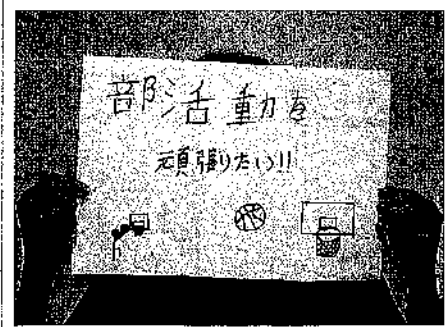 部活動を
頑張りたい!!